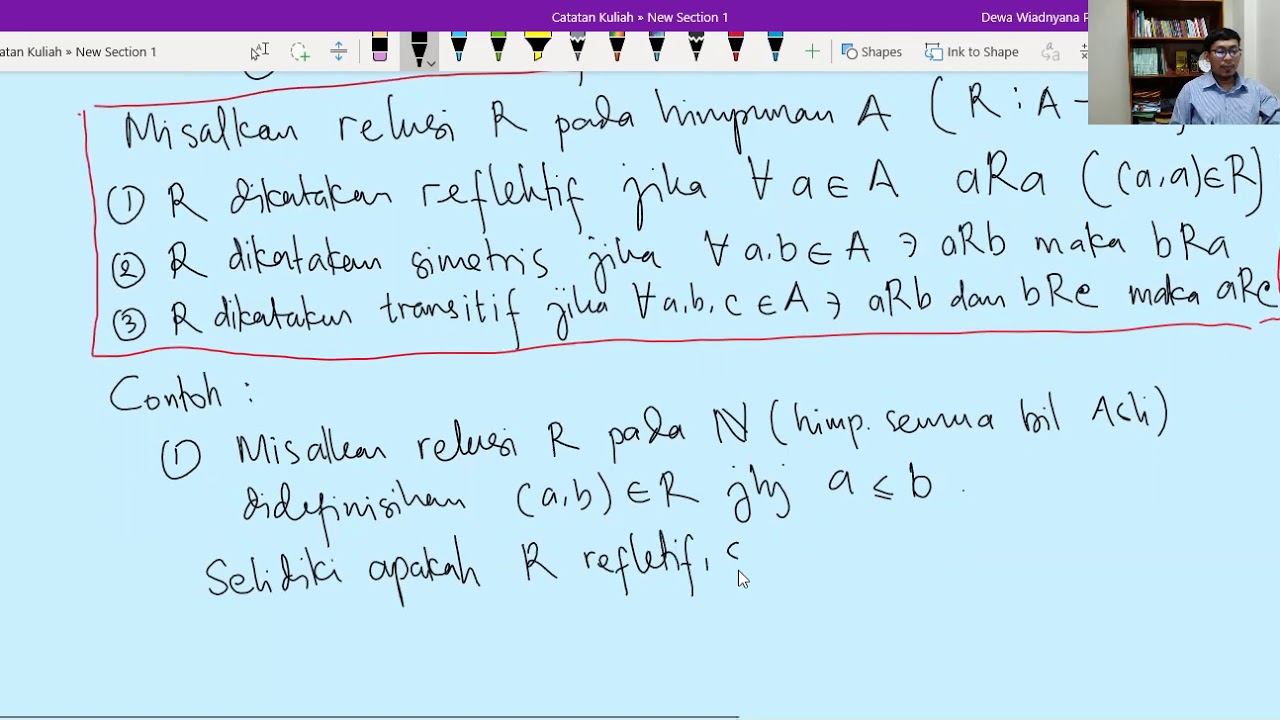 Catatan Kuliah » New Section 1
Dewa Wiadnyana P
atan Kuliah » New Section 1
Shapes
Ink to Shape
Misalkan relasi R pada himpunan A (R : A -
① R dikatakan reflektif jika ∀ a ∈ A aRa ((a,a) ∈ R)
② R dikatakan simetris jika ∀ a,b ∈ A ∋ aRb maka bRa
③ R dikatakan transitif jika ∀ a,b,c ∈ A ∋ aRb dan bRc maka aRc
Contoh :
① Misalkan relasi R pada ℕ (himp. semua bil Asli)
didefinisikan (a,b) ∈ R jhj a ≤ b .
Selidiki apakah R refletif, s